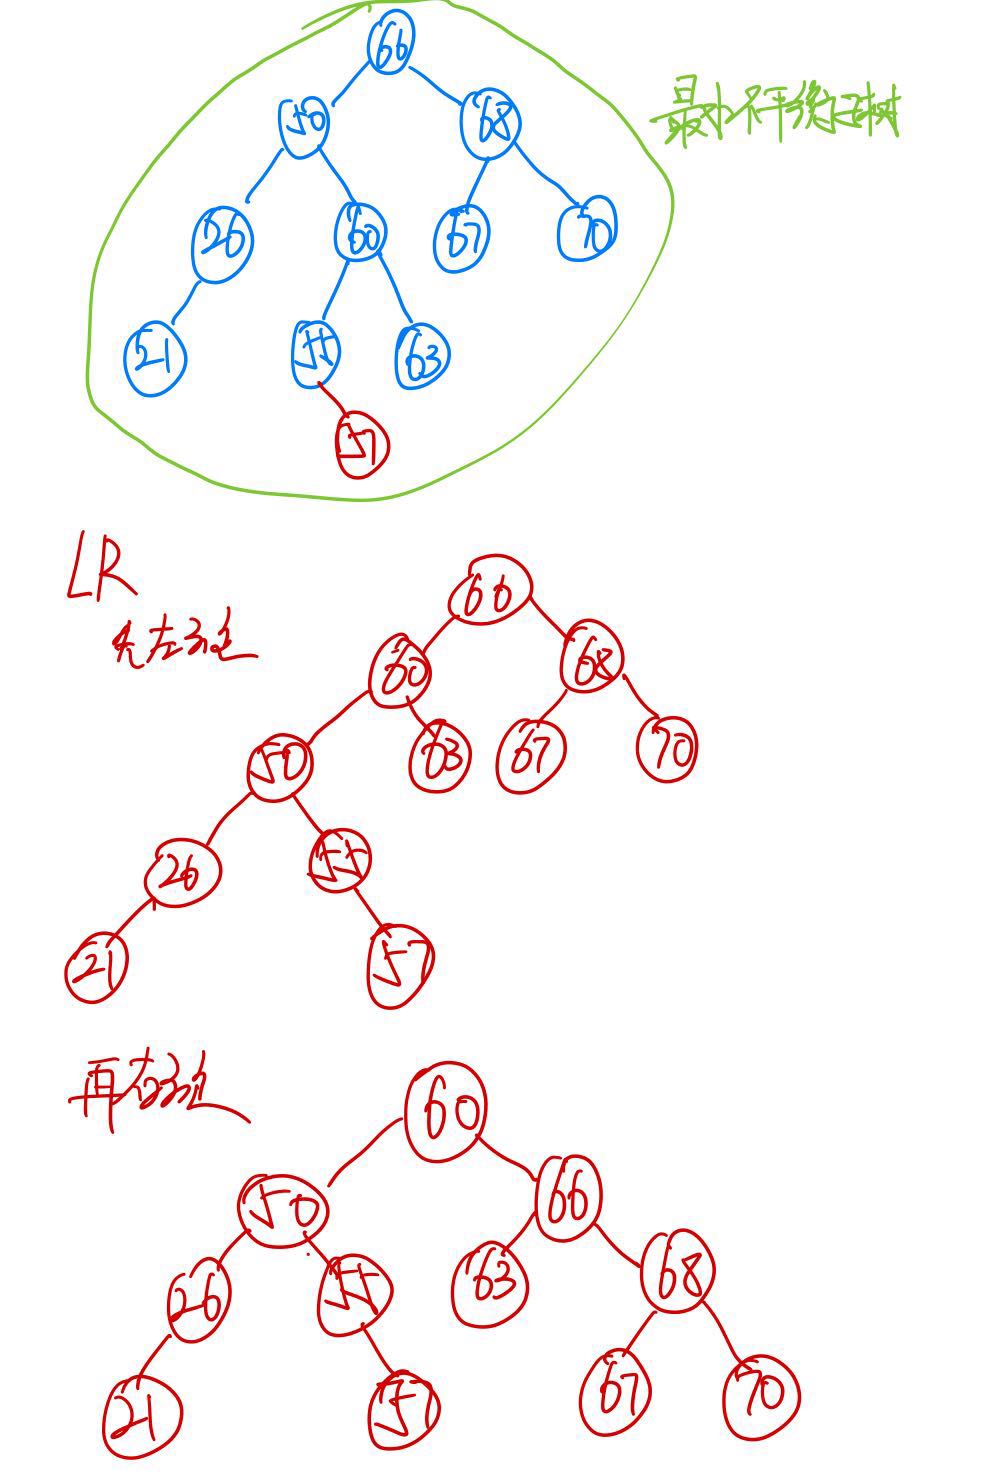 66
50 68
最小不平衡子树
26 60 67 70
21 55 63
57
LR
先左旋
66
60 68
50 63 67 70
26 55
21 57
再右旋
60
50 66
26 55 63 68
21 57 67 70